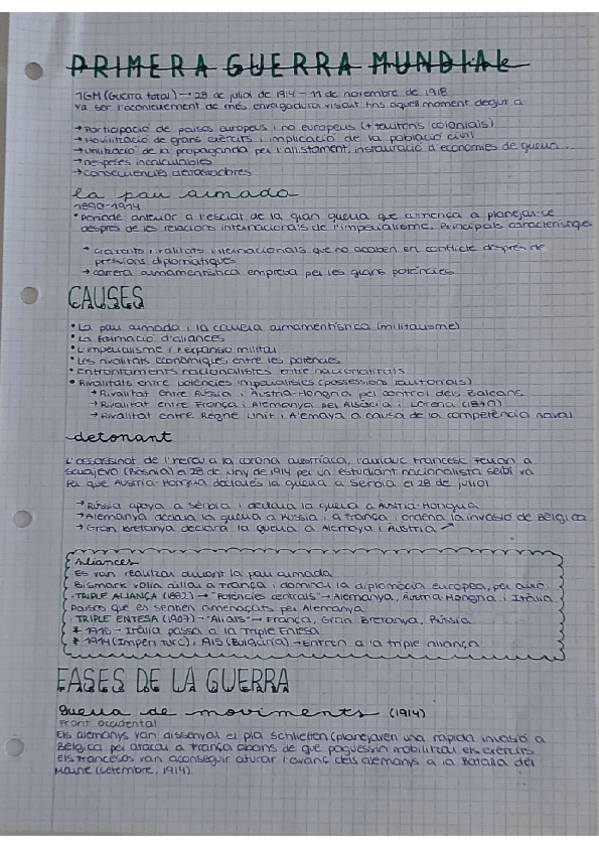 PRIMERA GUERRA MUNDIAL
1GM (Guerra total) → 28 de juliol de 1914 - 11 de novembre de 1918
va ser l'aconteixement de més envergadura viscut fins aquell moment degut a:
→ Participació de països europeus i no europeus (+ territoris colonials)
→ Movilització de grans exèrcits i implicació de la població civil
→ Utilització de la propaganda per l'allistament, instauració d'economies de guerra...
→ Despeses incalculables
→ Conseqüències devastadores
la pau armada
1890-1914
• Període anterior a l'esclat de la gran guerra que comença a planejar-se
després de les relacions internacionals de l'imperialisme. Principals característiques
→ Creixents rivalitats internacionals que no acaben en conflicte després de
pressions diplomàtiques
→ Carrera armamentística empresa per les grans potències
CAUSES
• La pau armada i la carrera armamentística (militarisme)
• La formació d'aliances
• L'imperialisme i l'expansió militar
• Les rivalitats econòmiques entre les potències
• Enfrontaments nacionalistes entre nacionalitats
• Rivalitats entre potències imperialistes (possessions territorials)
→ Rivalitat entre Rússia i Àustria-Hongria pel control dels Balcans
→ Rivalitat entre França i Alemanya per Alsàcia i Lorena (1870)
→ Rivalitat entre Regne Unit i Alemaya a causa de la competència naval
detonant
L'assassinat de l'hereu a la corona austríaca, l'arxiduc Francesc Ferran a
Sarajevo (Bòsnia) el 28 de juny de 1914 per un estudiant nacionalista serbi va
fer que Àustria-Hongria declarés la guerra a Serbia el 28 de juliol
→ Rússia apoya a Sèrbia i declara la guerra a Àustria-Hongria
→ Alemanya declara la guerra a Rússia i a França i ordena la invasió de Bèlgica
→ Gran Bretanya declara la guerra a Alemaya i Àustria
Aliances
Es van realitzar durant la pau armada
Bismark volia aïllar a França i dominar la diplomàcia europea, per això
• TRIPLE ALIANÇA (1882) → "Potències centrals" → Alemanya, Àustria-Hongria i Itàlia
Països que es senten amenaçats per Alemanya
• TRIPLE ENTESA (1907) → "Aliats" → França, Gran Bretanya, Rússia
* 1915 - Itàlia passa a la Triple Entesa
* 1914 (Imperi turc) i 1915 (Bulgària) → Entren a la triple aliança
FASES DE LA GUERRA
guerra de moviments (1914)
Front occidental
Els alemanys van dissenyar el pla Schlieffen (planejaven una ràpida invasió a
Bèlgica per atacar a França abans de que poguessin mobilitzar els exèrcits
Els francesos van aconseguir aturar l'avanç dels alemanys a la Batalla del
Marne (setembre, 1914).